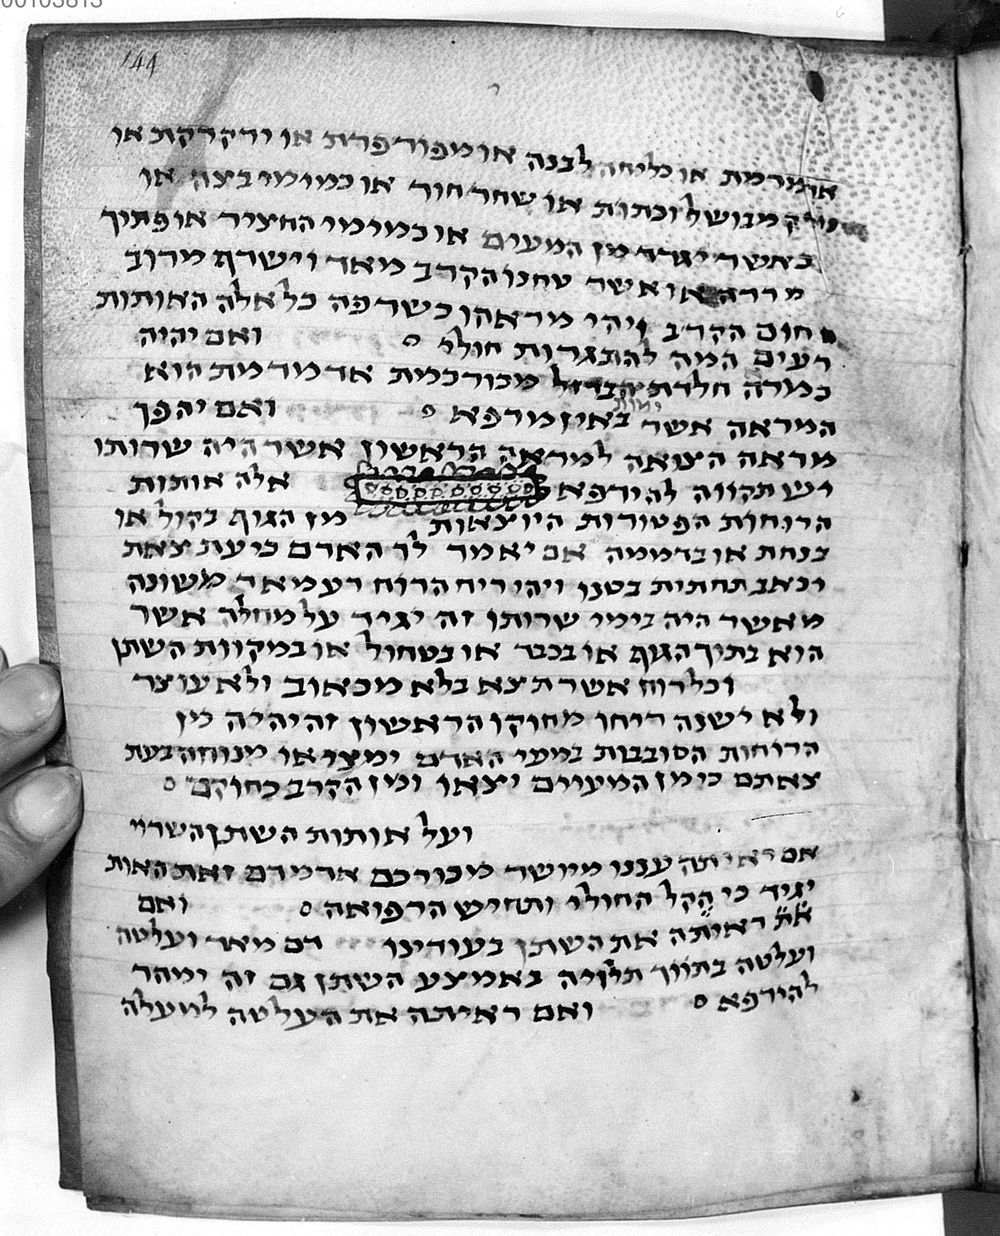 00103813
144
אדמדמת או כליחה לבנה או מפורפרת או ירקרקת או
מבושל וכתות או שחר חור או כמו מי בצה או
כאשר יגרר מן המעים או כמו מימי החציר או פתיך
מררה או אשר טחנו הקרב מאד וישרף מרוב
חום הקרב ויהי מראהו כשרפה כל אלה האותות
רעים המה להתגרות חולי ואם יהיה
כמורה חלדת הברזל מכורכמת אדמדמת הוא
המראה אשר באין מרפא ואם יהפך
ימות
מראה היצואה למראה הראשון אשר היה שרותו
יש תקווה להירפא אלה אותות
הרוחות הפטורות היוצאות מן הגוף בקול או
בנחת או בדממה אם יאמר לך האדם כי עת צאת
יכאב תחתית בטנו ויהי ריח הרוח רע מאד משונה
מאשר היה בימי שרותו זה יגיד על מחלה אשר
הוא בתוך הגוף או בכבד או בטחול או במקוות השתן
וכל רוח אשר תצא בלא מכאוב ולא עוצר
ולא ישנה ריחו מחוקו הראשון זה יהיה מן
הרוחות הסובבות במעי האדם ימצאו מנוחה בעת
צאתם כי מן המעיים יצאו ומן הקרב כחוקם
ועל אותות השתן השרוי
אם ראיתה עננו מיושר מכורכם אדמדם זאת האות
יגיד כי הקל החולי ותחיש הרפואה ואם
את ראיתה את השתן בעודינו דם מאד ועלטה
ועלטה בתווך תלויה באמצע השתן גם זה ימהר
להירפא ואם ראיתה את העלטה למעלה